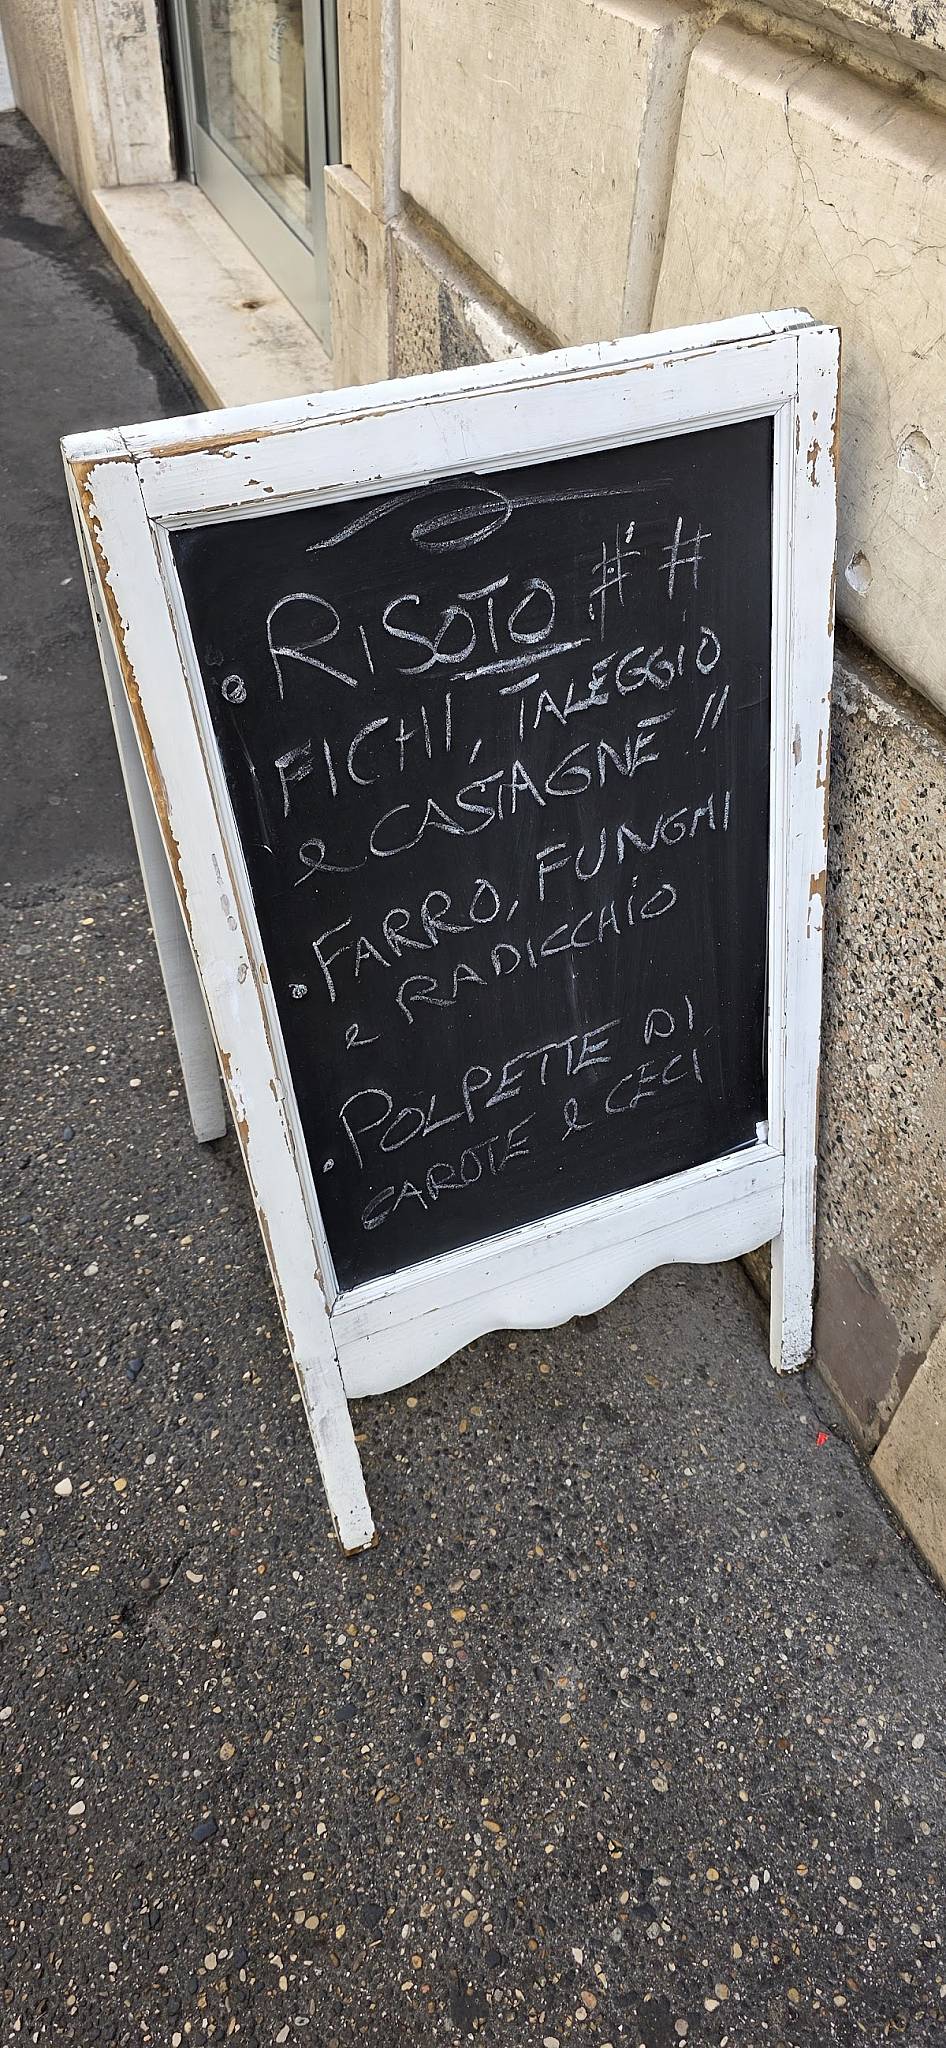 RISOTO ##
FICHI, TALEGGIO
e CASTAGNE !!
FARRO, FUNGHI
e RADICCHIO
POLPETTE DI
CAROTE e CECI